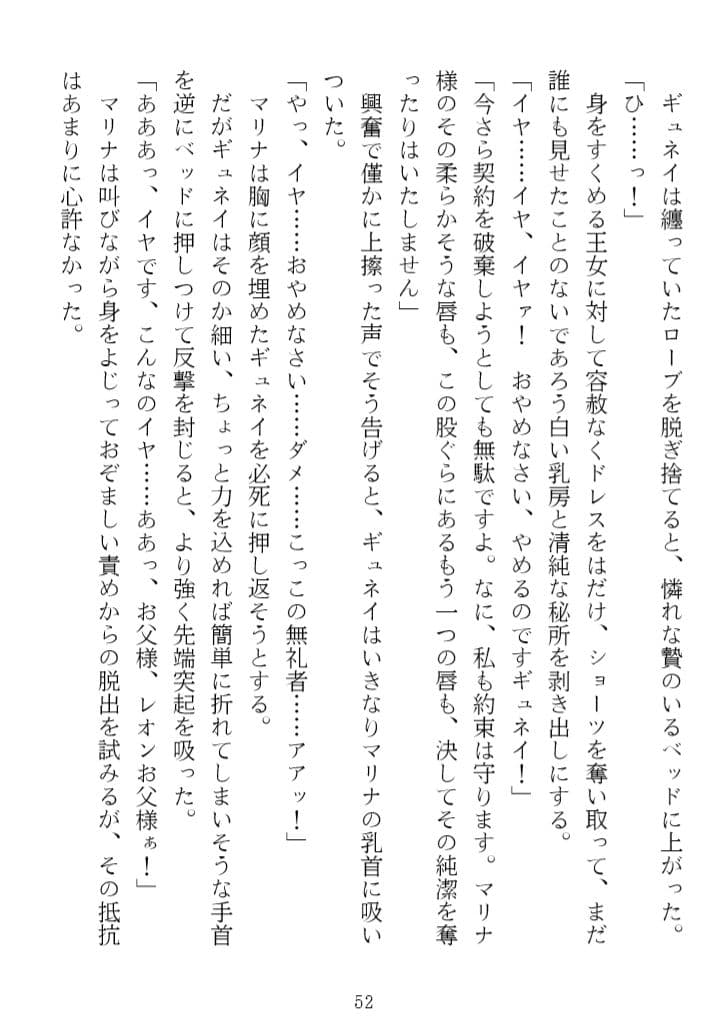 ギュネイは纏っていたローブを脱ぎ捨てると、憐れな贄のいるベッドに上がった。
「ひ……っ！」
　身をすくめる王女に対して容赦なくドレスをはだけ、ショーツを奪い取って、まだ
誰にも見せたことのないであろう白い乳房と清純な秘所を剥き出しにする。
「イヤ……イヤ、イヤァ！　おやめなさい、やめるのですギュネイ！」
「今さら契約を破棄しようとしても無駄ですよ。なに、私も約束は守ります。マリナ
様のその柔らかそうな唇も、この股ぐらにあるもう一つの唇も、決してその純潔を奪
ったりはいたしません」
　興奮で僅かに上擦った声でそう告げると、ギュネイはいきなりマリナの乳首に吸い
ついた。
「やっ、イヤ……おやめなさい……ダメ……こっこの無礼者……アアッ！」
　マリナは胸に顔を埋めたギュネイを必死に押し返そうとする。
　だがギュネイはそのか細い、ちょっと力を込めれば簡単に折れてしまいそうな手首
を逆にベッドに押しつけて反撃を封じると、より強く先端突起を吸った。
「あああっ、イヤです、こんなのイヤ……ああっ、お父様、レオンお父様ぁ！」
　マリナは叫びながら身をよじっておぞましい責めからの脱出を試みるが、その抵抗
はあまりに心許なかった。
52